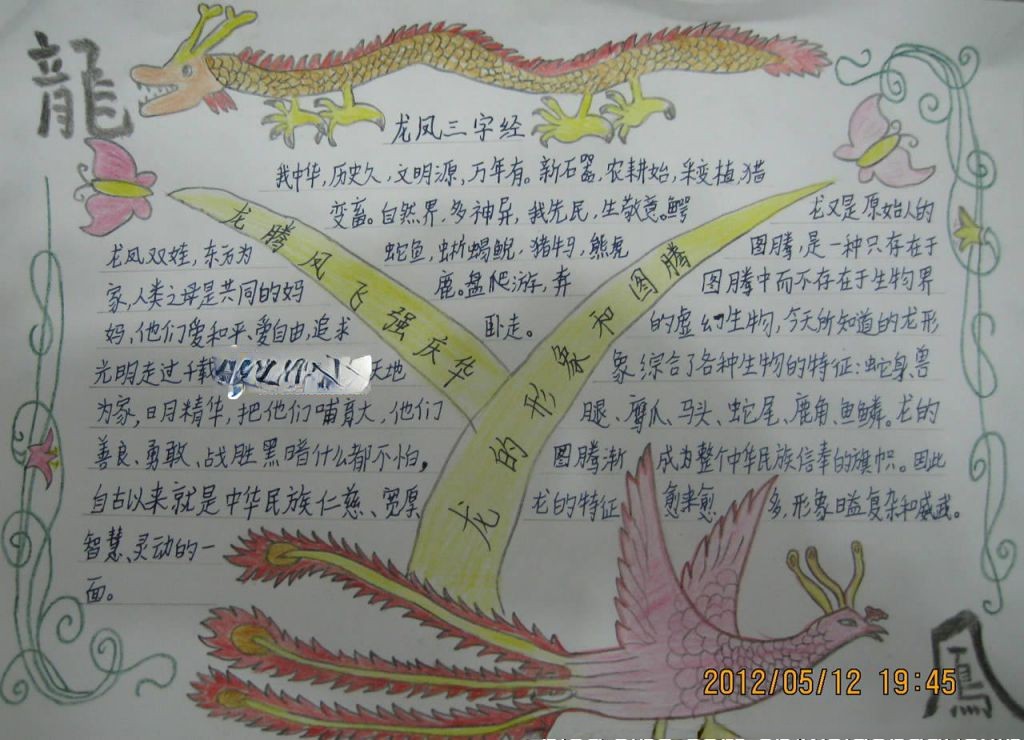 龍
龙凤三字经
我中华,历史久,文明源,万年有。新石器,农耕始,采变植,猎
变畜。自然界,多神异,我先民,生敬意。鳄
蛇鱼,蜥蜴鲵,猪牛马,熊虎
鹿。盘爬游,奔
卧走。
龙腾凤飞强庆华
龙凤双娃,东方为
家,人类之母是共同的妈
妈,他们爱和平、爱自由,追求
光明走过千载 天地
为家,日月精华,把他们哺育大,他们
善良、勇敢、战胜黑暗什么都不怕,
自古以来就是中华民族仁慈、宽厚
智慧、灵动的一
面。
龙的形象和图腾
龙又是原始人的
图腾,是一种只存在于
图腾中而不存在于生物界
的虚幻生物,今天所知道的龙形
象,综合了各种生物的特征:蛇身、兽
腿、鹰爪、马头、蛇尾、鹿角、鱼鳞。龙的
图腾渐 成为整个中华民族信奉的旗帜。因此
龙的特征 愈来愈 多,形象日益复杂和威武。
凤
2012/05/12 19:45